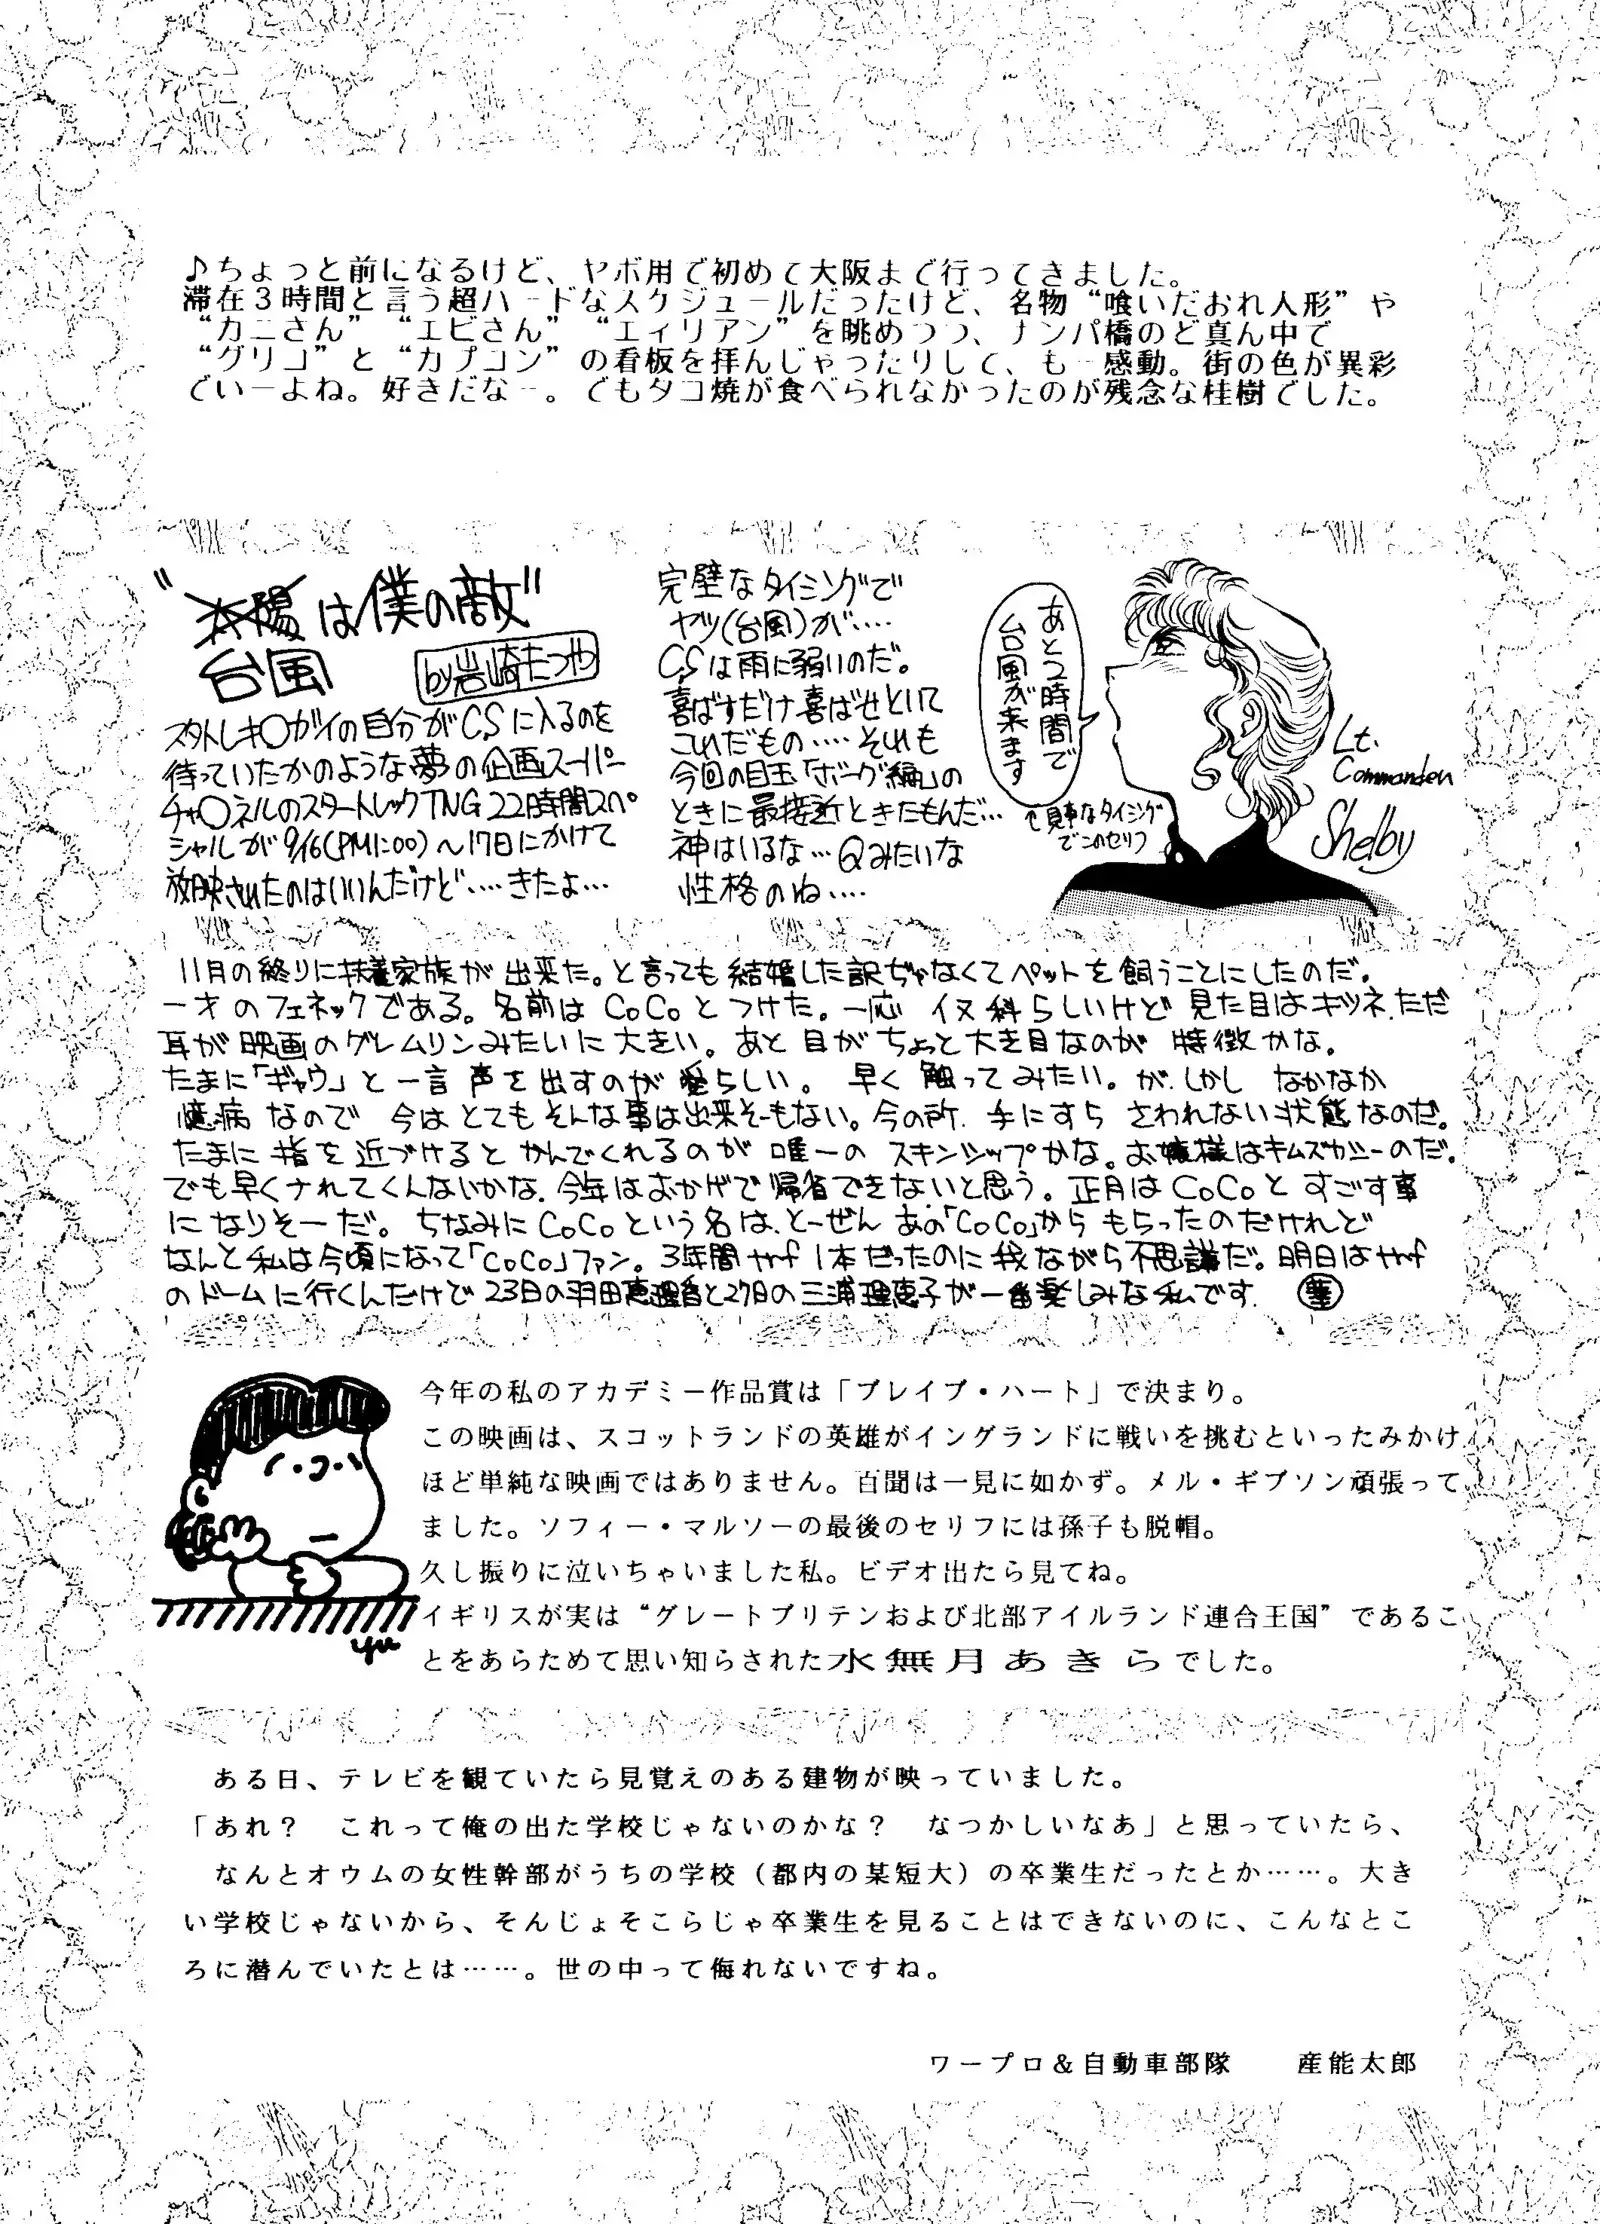 ♪ちょっと前になるけど、ヤボ用で初めて大阪まで行ってきました。
滞在3時間と言う超ハードなスケジュールだったけど、名物“喰いだおれ人形”や
“カニさん”“エビさん”“エイリアン”を眺めつつ、ナンパ橋のど真ん中で
“グリコ”と“カプコン”の看板を拝んじゃったりして、も一感動。街の色が異彩
でいーよね。好きだなー。でもタコ焼が食べられなかったのが残念な桂樹でした。
“太陽は僕の敵”
台風
by岩崎たつや
スタトレキ○ガイの自分がCSに入るのを
待っていたかのような夢の企画スーパー
チャ○ネルのスタートレックTNG22時間スペ
シャルが9/16(PM1:00)〜17日にかけて
放映されたのはいいんだけど‥‥きたよ…
完璧なタイミングで
ヤツ(台風)が‥‥
CSは雨に弱いのだ。
喜ばすだけ喜ばせといて
これだもの‥‥それも
今回の目玉「ボーグ編」の
ときに最接近ときたもんだ…
神はいるな…Qみたいな
性格のね‥‥
あと2時間で
台風が来ます
↑見事なタイミング
でこのセリフ
Lt.
Commander
Shelby
11月の終りに扶養家族が出来た。と言っても結婚した訳ぢゃなくてペットを飼うことにしたのだ。
一才のフェネックである。名前はCoCoとつけた。一応イヌ科らしいけど見た目はキツネ、ただ
耳が映画のグレムリンみたいに大きい。あと目がちょっと大き目なのが特徴かな。
たまに「ギャウ」と一言声を出すのが愛らしい。早く触ってみたい。が、しかしなかなか
憶病なので今はとてもそんな事は出来そーもない。今の所、手にすらさわれない状態なのだ。
たまに指を近づけるとかんでくれるのが唯一のスキンシップかな。お嬢様はキムズカシーのだ。
でも早くナれてくんないかな。今年はおかげで帰省できないと思う。正月はCoCoとすごす事
になりそーだ。ちなみにCoCoという名は、とーぜんあの「CoCo」からもらったのだけれど
なんと私は今頃になって「CoCo」ファン。3年間サnf1本だったのに我ながら不思議だ。明日はサnf
のドームに行くんだけど23日の羽田恵理香と27日の三浦理恵子が一番楽しみな私です。
今年の私のアカデミー作品賞は「ブレイブ・ハート」で決まり。
この映画は、スコットランドの英雄がイングランドに戦いを挑むといったみかけ
ほど単純な映画ではありません。百聞は一見に如かず。メル・ギブソン頑張って
ました。ソフィー・マルソーの最後のセリフには孫子も脱帽。
久し振りに泣いちゃいました私。ビデオ出たら見てね。
イギリスが実は“グレートブリテンおよび北部アイルランド連合王国”であるこ
とをあらためて思い知らされた水無月あきらでした。
yu
ある日、テレビを観ていたら見覚えのある建物が映っていました。
「あれ？　これって俺の出た学校じゃないのかな？　なつかしいなあ」と思っていたら、
なんとオウムの女性幹部がうちの学校（都内の某短大）の卒業生だったとか……。大き
い学校じゃないから、そんじょそこらじゃ卒業生を見ることはできないのに、こんなとこ
ろに潜んでいたとは……。世の中って侮れないですね。
ワープロ＆自動車部隊　　産能太郎